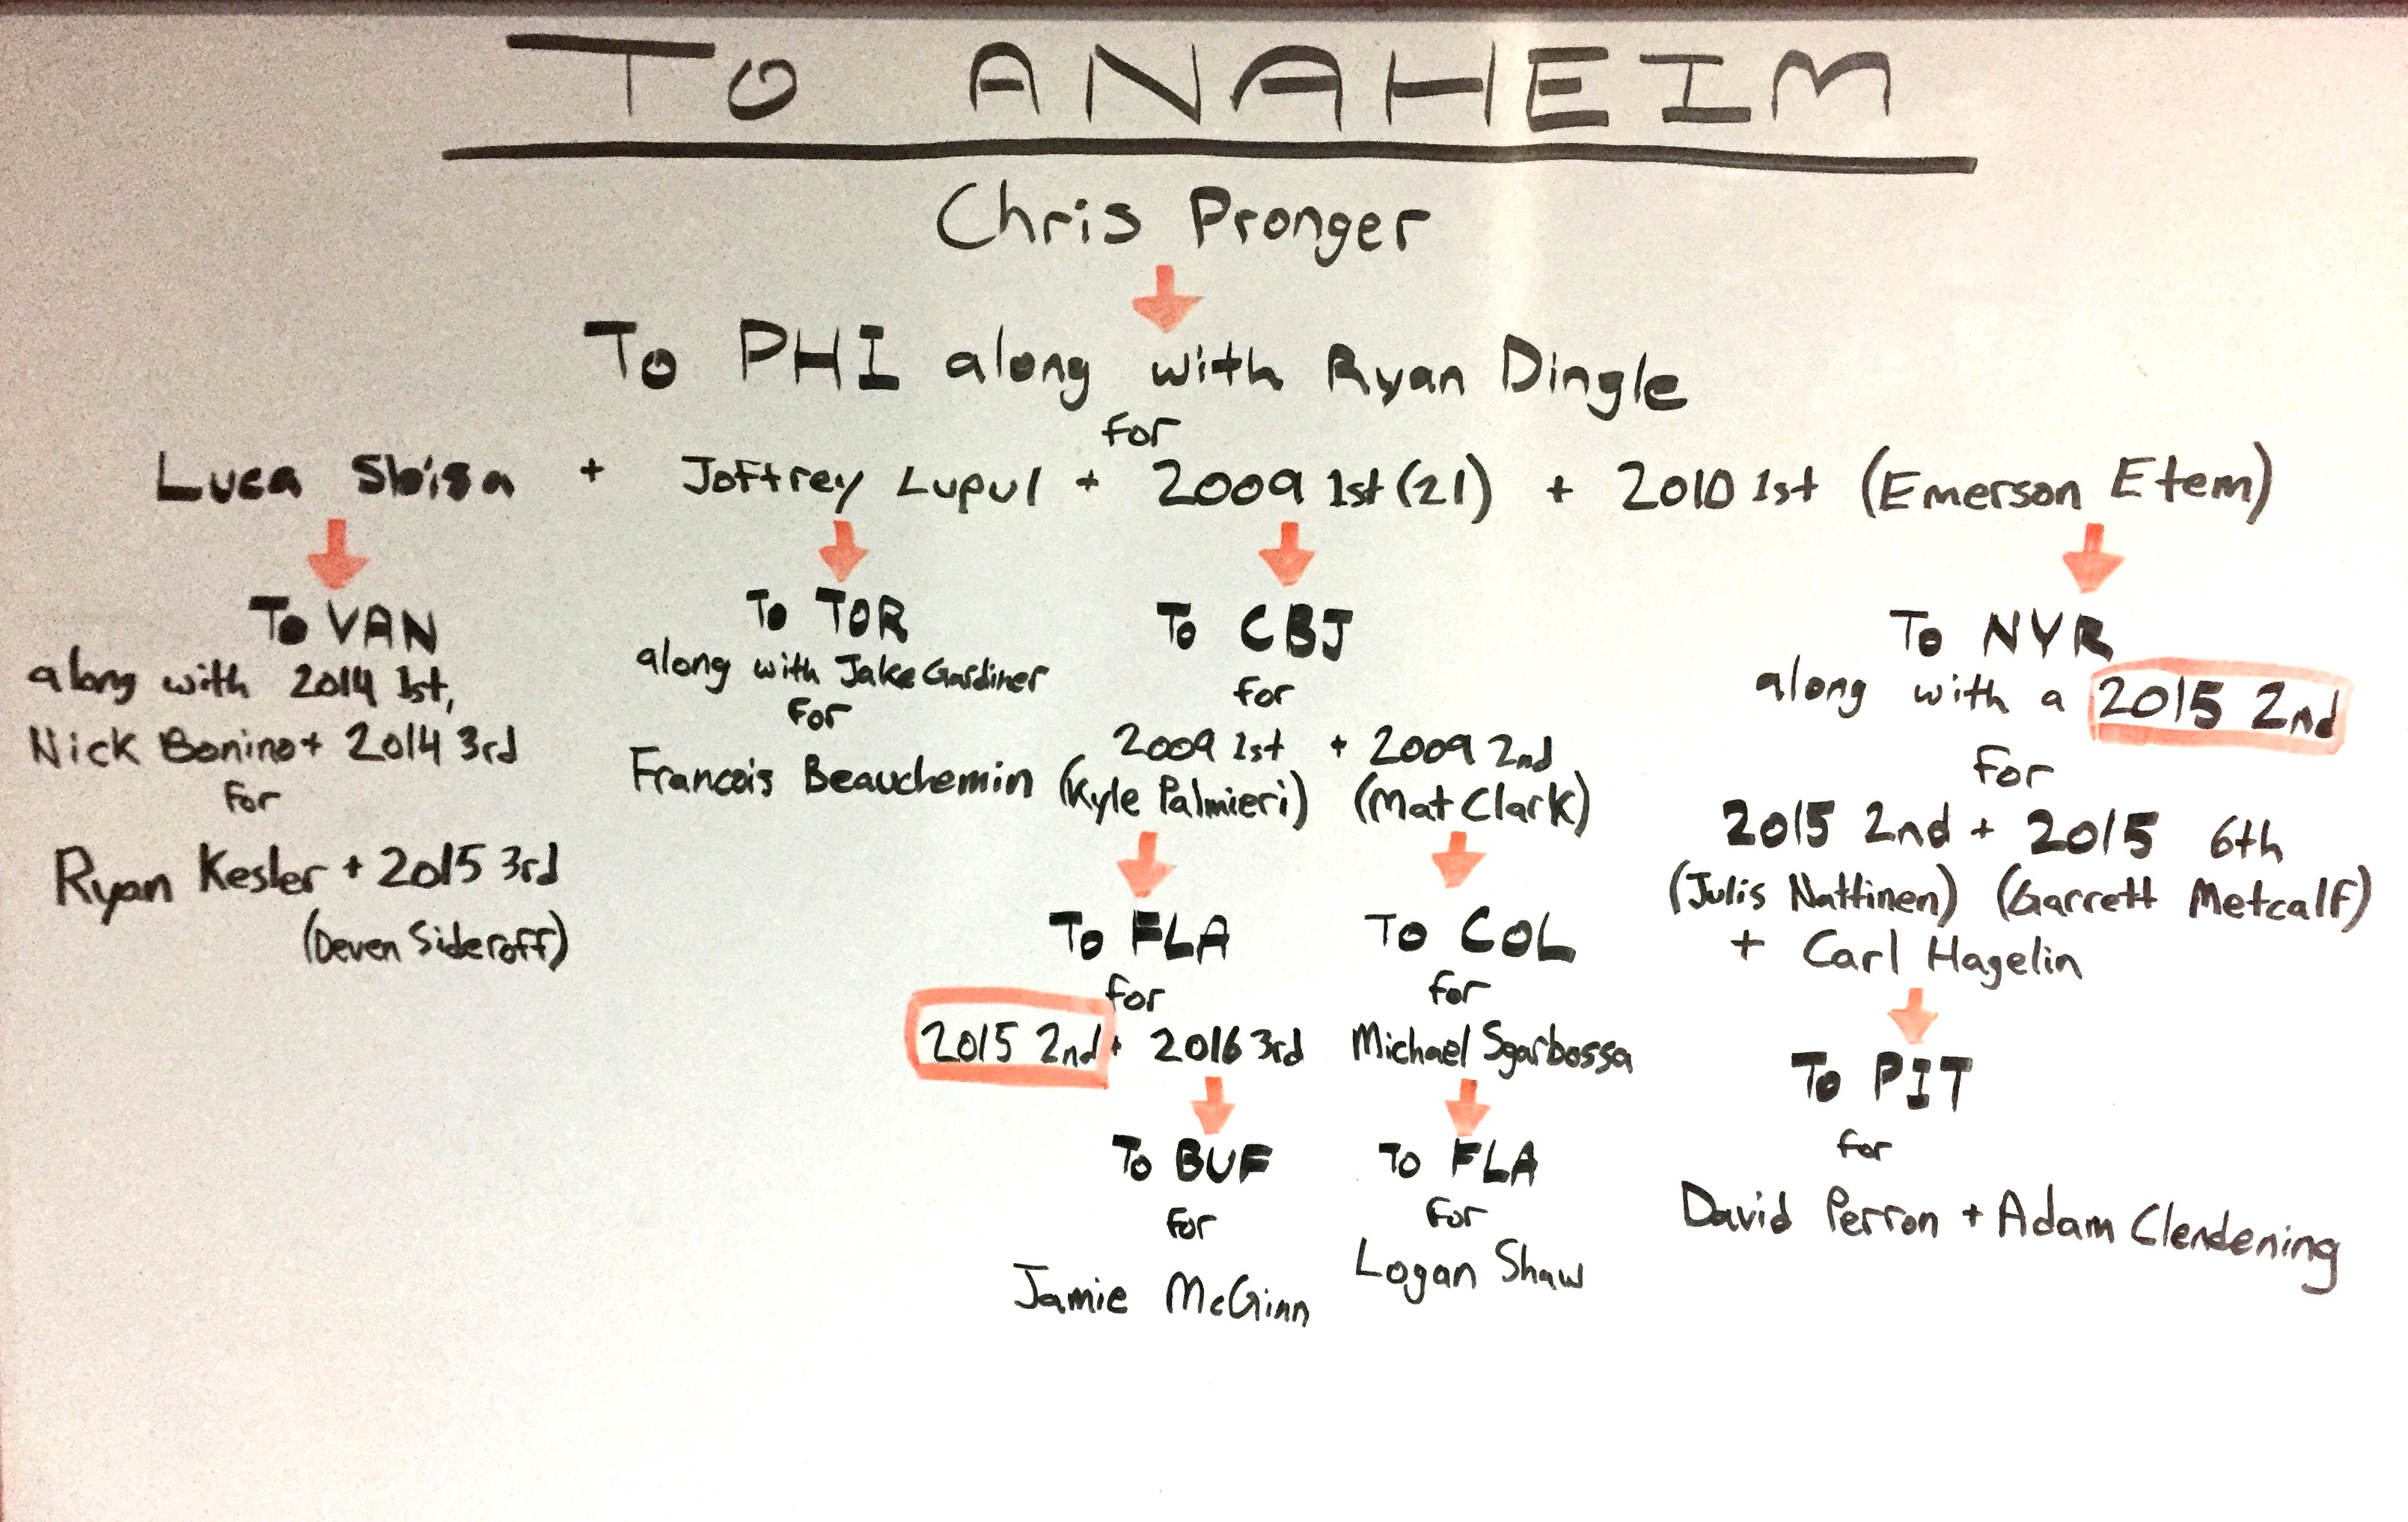 TO ANAHEIM
Chris Pronger
To PHI along with Ryan Dingle
for
Luca Sbisa + Joffrey Lupul + 2009 1st (21) + 2010 1st (Emerson Etem)
To VAN
along with 2014 1st,
Nick Bonino + 2014 3rd
for
Ryan Kesler + 2015 3rd
(Deven Sideroff)
To TOR
along with Jake Gardiner
for
Francois Beauchemin
To CBJ
for
2009 1st + 2009 2nd
(Kyle Palmieri) (Mat Clark)
To FLA
for
2015 2nd + 2016 3rd
To BUF
for
Jamie McGinn
To COL
for
Michael Sgarbossa
To FLA
for
Logan Shaw
To NYR
along with a 2015 2nd
for
2015 2nd + 2015 6th
(Julis Nattinen) (Garrett Metcalf)
+ Carl Hagelin
To PIT
for
David Perron + Adam Clendening